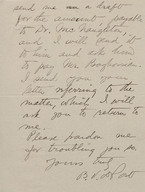 send me a draft
for the amount payable
to Dr. McNaughton,
and I will send it
to him and ask him
to pay Mr. Boughman.
I send you your
letter referring to the
matter, which I will
ask you to return to
me.
Please pardon me
for troubling you so.
Yours truly
B.